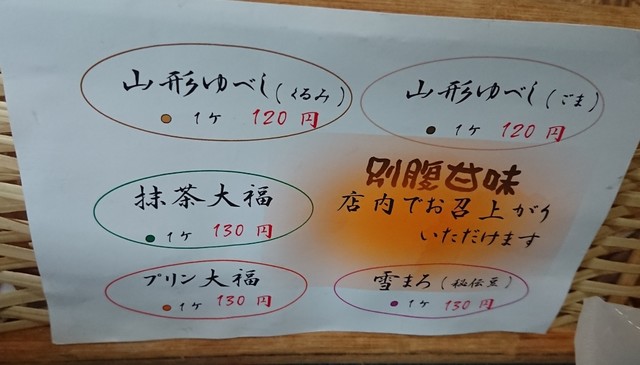 山形ゆべし(くるみ)
1ケ 120円
山形ゆべし(ごま)
1ケ 120円
抹茶大福
1ケ 130円
別腹甘味
店内でお召上がり
いただけます
プリン大福
1ケ 130円
雪まろ(秘伝豆)
1ケ 130円